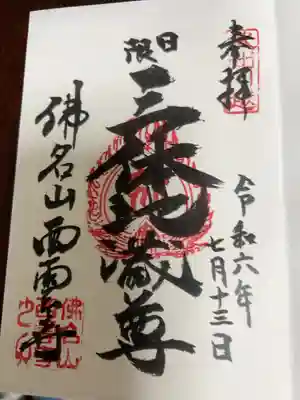 奉拝
令和六年
七月十三日
日限
三体地蔵尊
佛名山 西雲寺